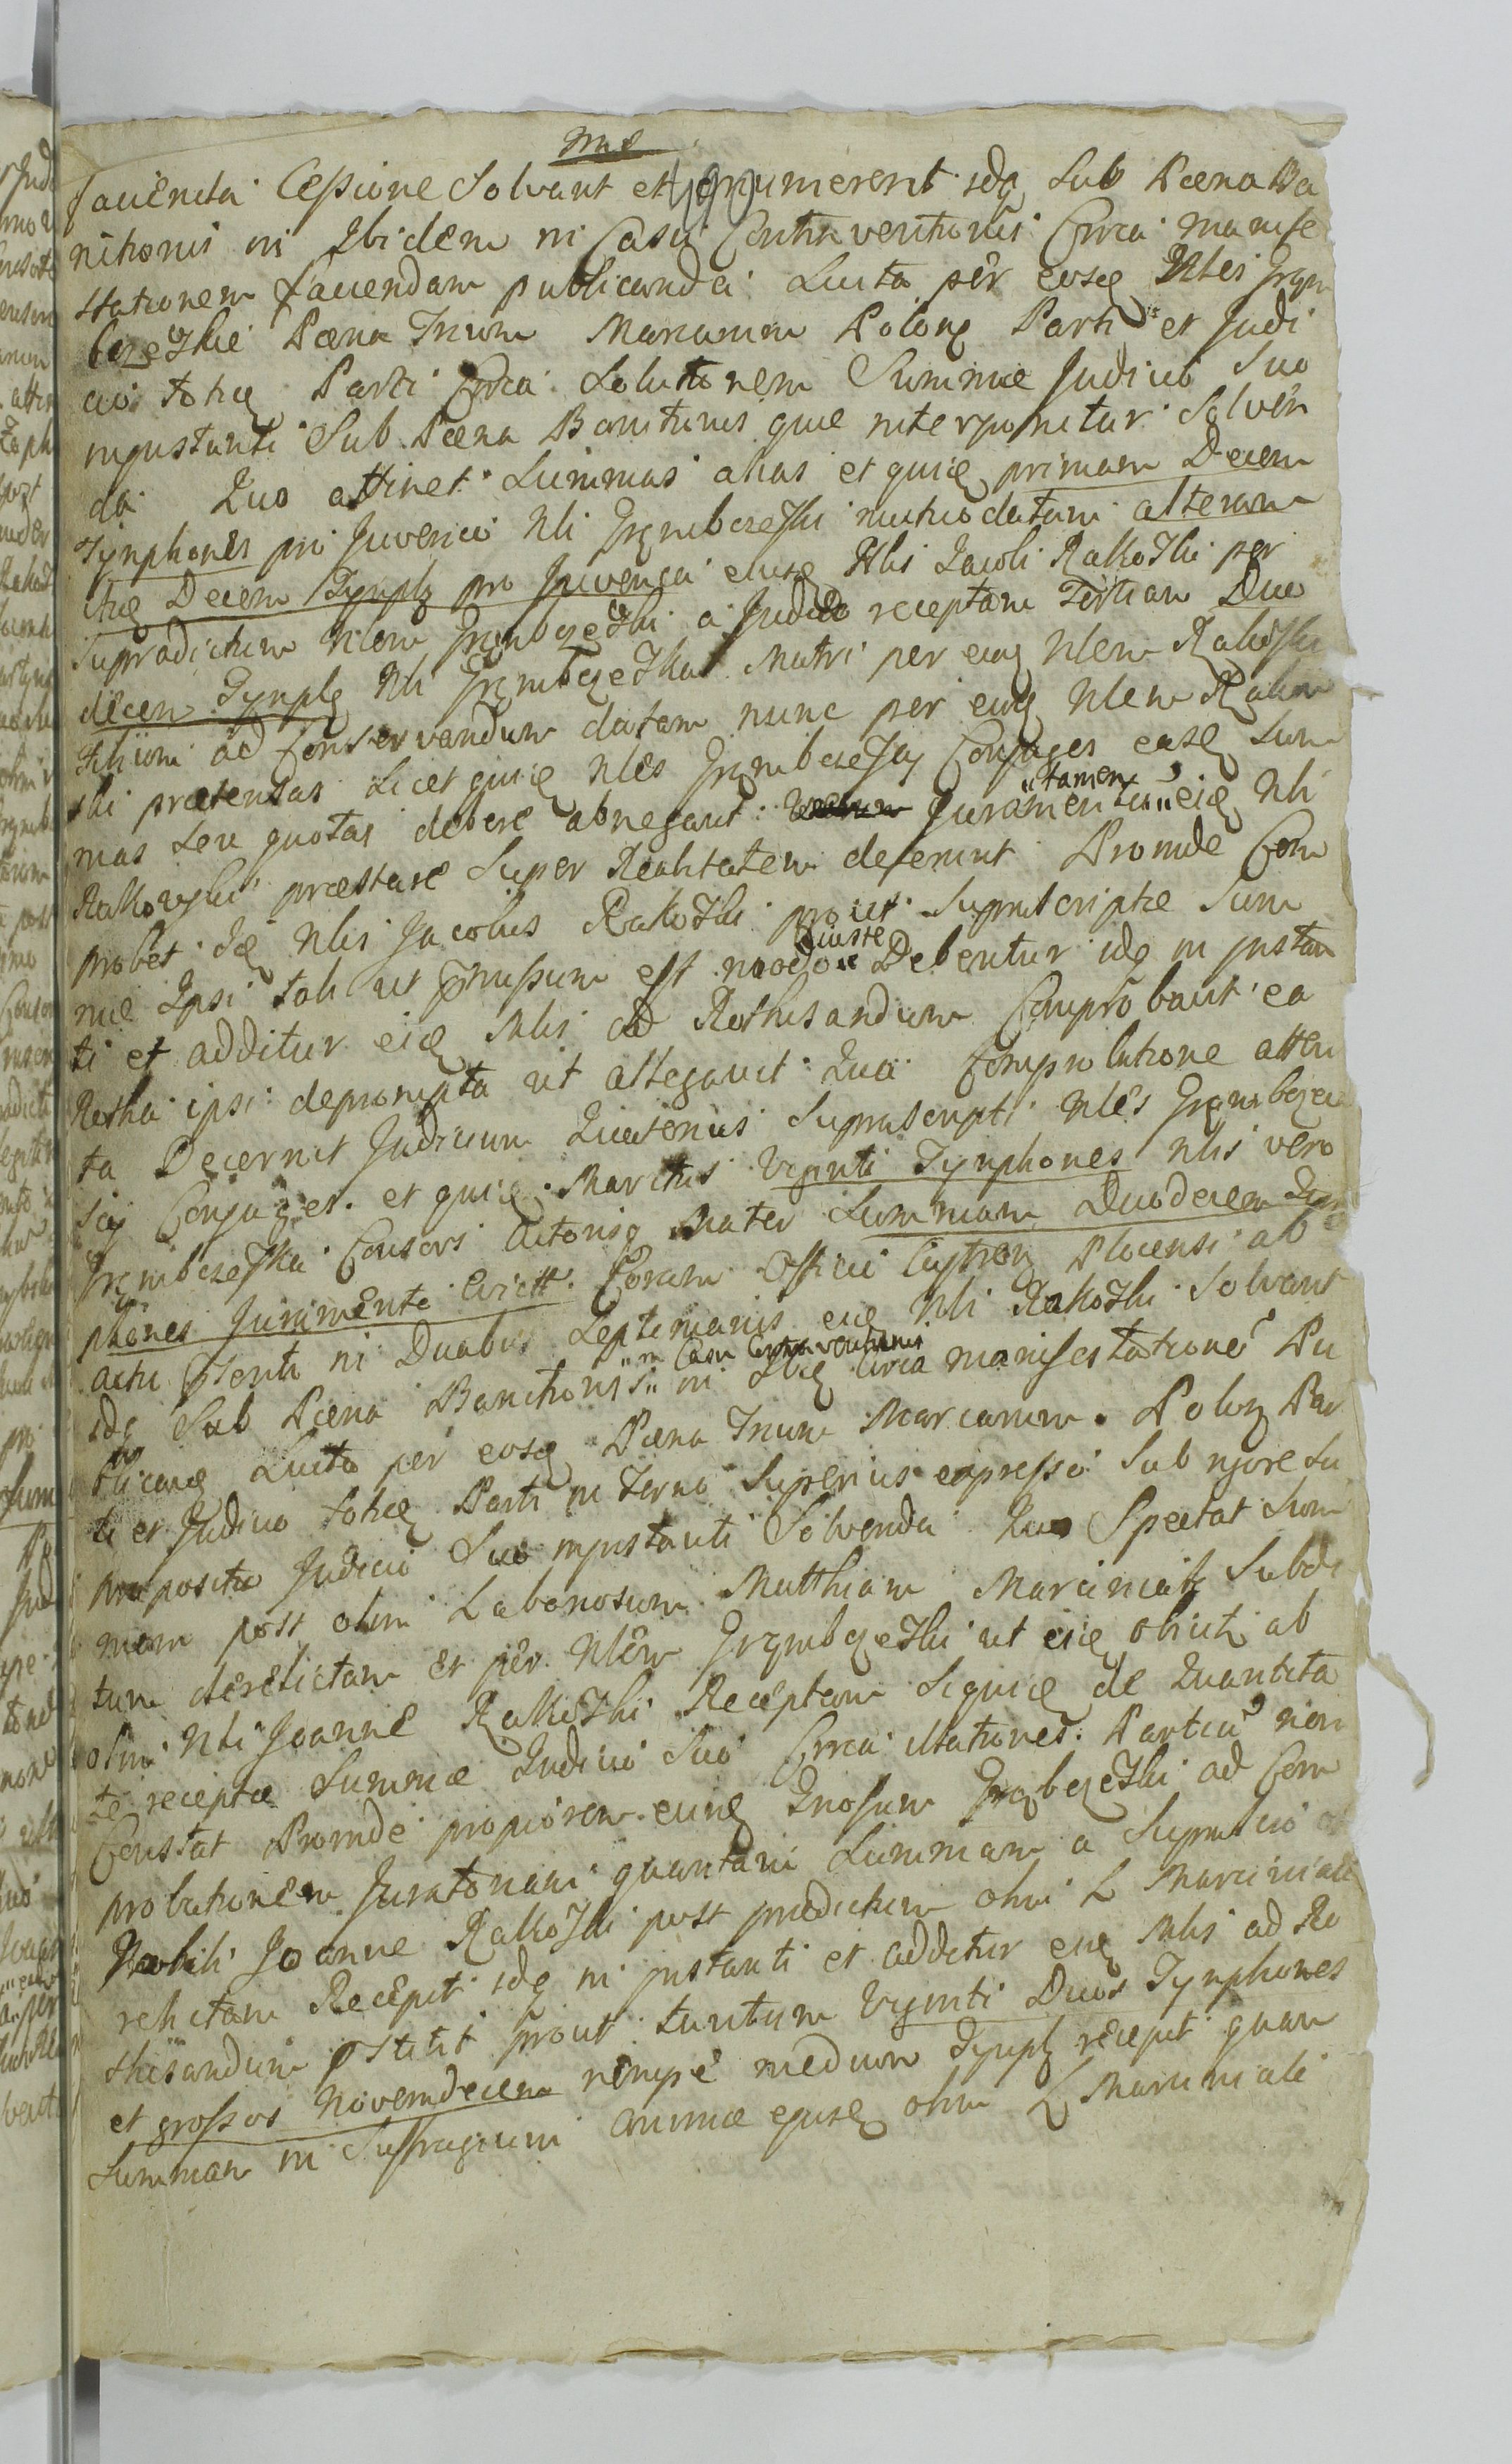 faciendâ Cessione Solvant et enumerent idq Sub Pæna Ba
nitionis in Ibidem in Casu Contraventionis Circa manife
stationem faciendam publicanda Luita per eosd Nbles Grzym
bczeskie Pæna Trium Marcarum Polonq Parti et Judi
cio totid Parti Circa Solutionem Summæ Judicio Suo
injustanti Sub Pæna Banitionis quæ interponitur Solven
da Quo attinet Summas alias et quid primam Decem
Tynphones pro Juvenco Nbli Grzymbczeski mutuo datam alteram
itid Decem Tynph pro Juvenca eiusd Nblis Jacobi Rakoski per
supradictum Nblem Grzymbczeski a Judæo receptam Tertiam Duo
decem Tynph Nbli Grzymbczeska Matri per eund Nblem Rakoski
Filium ad Conservandum datam nunc per eund Nblem Rakow
ski prætensas Licet quid Nbles Grzymbczescy Conjuges easd Sum
mas seu quotas debere abnegant Juramentum "tamen" eid Nbli
Rakowski præstare Super Realitatem deferunt Proinde Com
probet Id Nblis Jacobus Rakoski prout Supra scriptæ Sum
mæ Ipsi tali ut præmissum est modo "Juste" Debentur idq in instan
ti et additur eid Nblis ad Rothisandum Comprobavit ea
Rotha ipsi deprompta ut allegavit Qua Comprobatione atten
ta Decernit Judicium Quatenus Suprascripti Nbles Grzymbczew
scy Conjuges et quid Maritus Viginti Tynphones Nblis vero
Grzymbczeska Consors Actorisq Mater Summam Duodecem Tyn
phones Juramento evict Coram Officio Castren Plocensi ab
actu præsenti in Duabus Septimanis eid Nbli Rakoski Solvant
idq Sub Pæna Banitionis "in Casu Contraventionis" in Ibid Circa manifestatione Pu
blicand Luita per eosd Pæna Trium Marcarum Polonq Par
ti et Judicio totid Parti in Termo Superius expresso Sub rigore su
pra posito Judicio Suo injustanti Solvenda Quo Spectat Sum
mam post olim Laboriosum Matthiam Marciniak Subdi
tum derelictam et per Nblem Grzymbczeski ut eid obiicit ab
olim Nbli Joanne Rakoski Receptam Siquid de Quantita
te receptæ Summæ Judicio Suo Circa illationes Partiu non
Constat Proinde propiorem eund Gnosum Grzymbczeski ad Com
probationem Juratoriam quantam Summam a Supradicto
Nobili Joanne Rakoski post prædictum olim L Marciniak
relictam Recepit idq in instanti et additur eid Nblis ad Ro
thisandum præstitit prout tantum Viginti Duos Tynphones
et grossos Novemdecem nempe medium Tynph recepit quam
Summam in Suffragium animæ ejusd olim L Marciniak